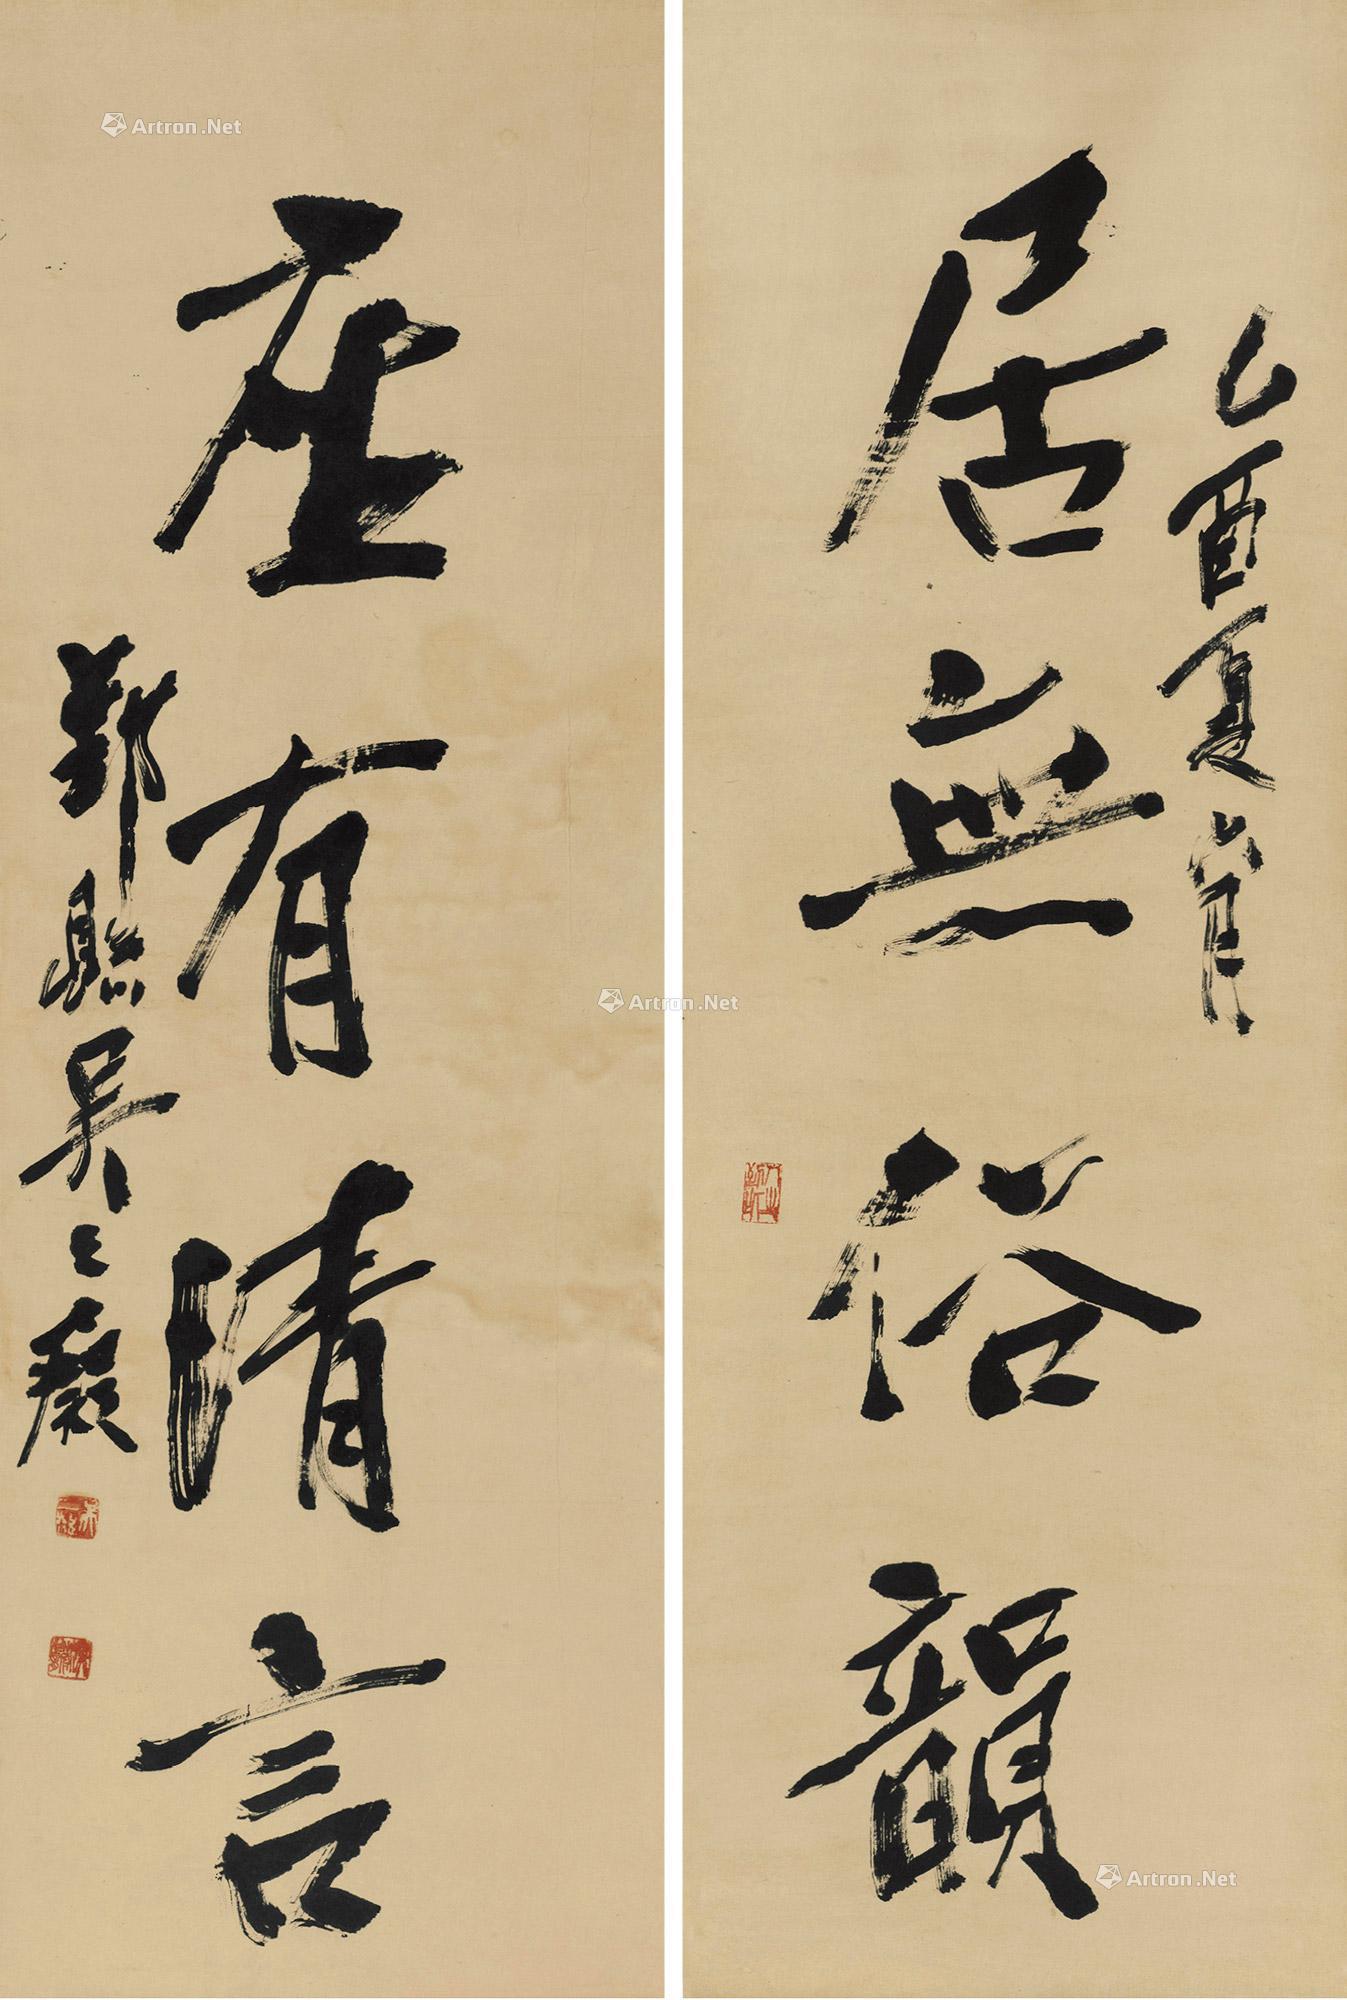 乙酉夏六月
居無俗韻
座有清言
鄞縣吳
Artron.Net
Artron.Net
Artron.Net